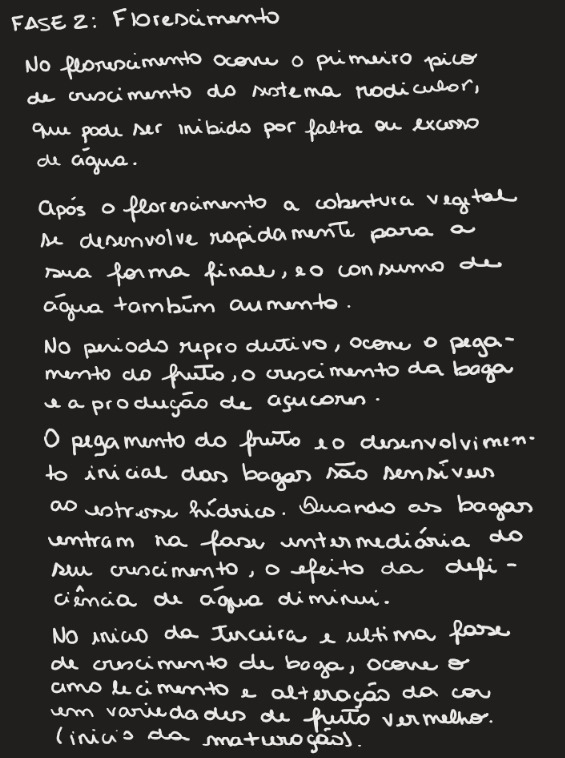 FASE 2: Florescimento
No florescimento ocorre o primeiro pico
de crescimento do sistema radicular,
que pode ser inibido por falta ou excesso
de água.
Após o florescimento a cobertura vegetal
se desenvolve rapidamente para a
sua forma final, e o consumo de
água também aumento.
No periodo reprodutivo, ocorre o pega-
mento do fruto, o crescimento da baga
e a produção de açucares.
O pegamento do fruto e o desenvolvimen-
to inicial das bagas são sensíveis
ao estresse hídrico. Quando as bagas
entram na fase intermediária do
seu crescimento, o efeito da defi-
ciência de água diminui.
No inicio da terceira e ultima fase
de crescimento de baga, ocorre o
amolecimento e alteração da cor
em variedades de fruto vermelho.
(inicio da maturação).